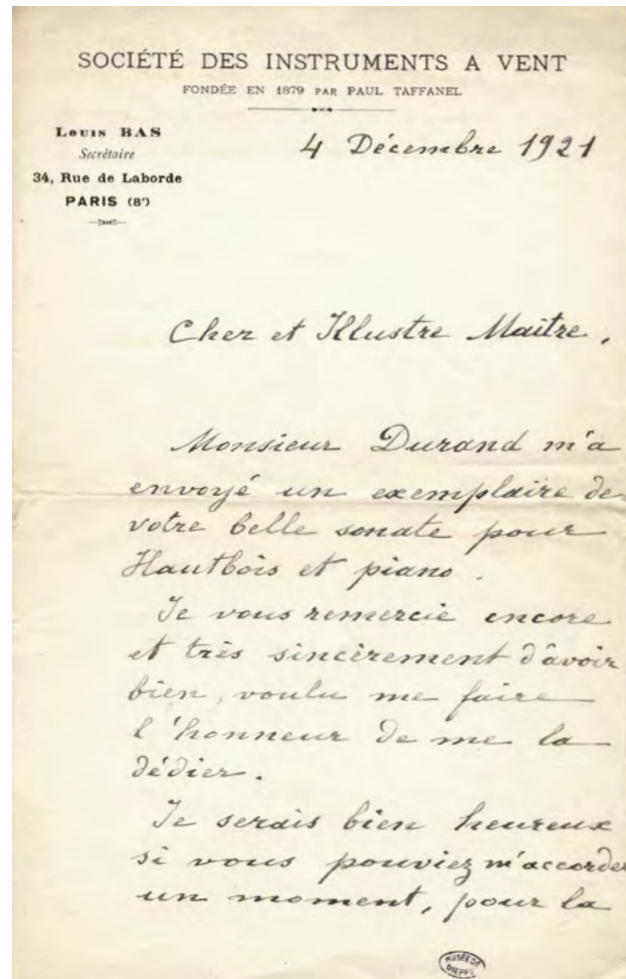 SOCIÉTÉ DES INSTRUMENTS A VENT
FONDÉE EN 1879 PAR PAUL TAFFANEL
Louis BAS
Secrétaire
34, Rue de Laborde
PARIS (8e)
4 Décembre 1921
Cher et Illustre Maître,
Monsieur Durand m'a
envoyé un exemplaire de
votre belle sonate pour
Hautbois et piano.
Je vous remercie encore
et très sincèrement d'avoir
bien voulu me faire
l'honneur de me la
dédier.
Je serais bien heureux
si vous pouviez m'accorder
un moment, pour la
MUSÉE DE
DIEPPE